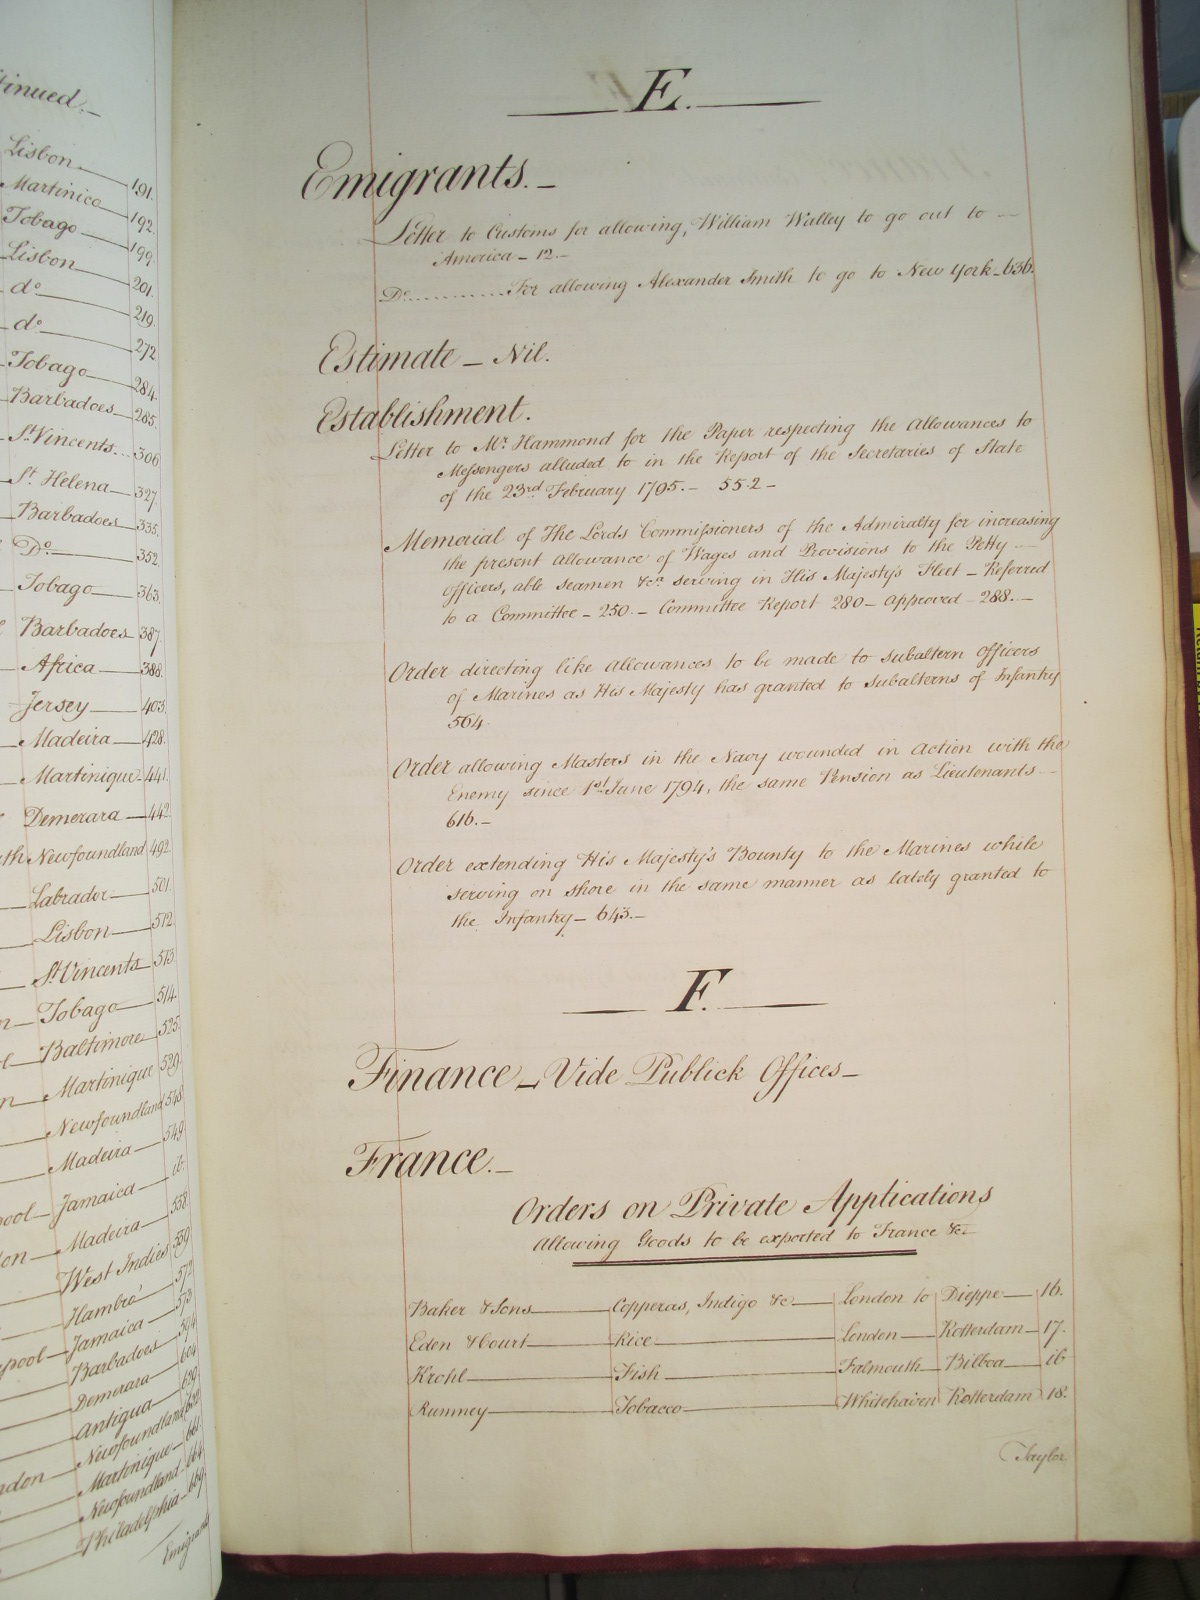 tinued.
Lisbon 191.
Martinico 192.
Tobago 199.
Lisbon 201.
do 219.
do 272
Tobago 284.
Barbadoes 285.
St Vincents... 306
St. Helena 327.
Barbadoes 335.
Do. 352.
Tobago 363.
Barbadoes 387.
Africa 388.
Jersey 403.
Madeira 428.
Martinique 441.
Demerara 442.
Newfoundland 492.
Labrador 501.
Lisbon 512.
St Vincents 513.
Tobago 514.
Baltimore 525.
Martinique 529.
Newfoundland 548
Madeira 549.
pool Jamaica ib.
don Madeira 558.
West Indies 559.
Hambro' 572
Jamaica 573.
pool Barbadoes 594
Demerara 604
Antigua 630.
Newfoundland 632
ndon Martinique 661.
Newfoundland 664.
Philadelphia 669.
Emigrants
E.
Emigrants. _
Letter to Customs for allowing, William Walley to go out to —
America _ 12. _
Do............For allowing Alexander Smith to go to New York _ 636.
Estimate _ Nil.
Establishment.
Letter to Mr. Hammond for the Paper respecting the Allowances to
Messengers alluded to in the Report of the Secretaries of State
of the 23rd February 1795. _ 552 _
Memorial of The Lords Commissioners of the Admiralty for increasing
the present Allowance of Wages and Provisions to the Petty —
Officers, able seamen &ca serving in His Majesty's Fleet _ Referred
to a Committee _ 250. _ Committee Report 280 _ approved _ 288. _
Order directing like allowances to be made to subaltern Officers
of Marines as His Majesty has granted to Subalterns of Infantry
564.
Order allowing Masters in the Navy wounded in Action with the
Enemy since 1st June 1794, the same Pension as Lieutenants _
616. _
Order extending His Majesty's Bounty to the Marines while
serving on shore in the same manner as lately granted to
the Infantry _ 643. _
F.
Finance _ Vide Publick Offices _
France. _
Orders on Private Applications
Allowing Goods to be exported to France &c
Baker & Sons Copperas, Indigo &c London to Dieppe 16.
Eden & Court Rice London Rotterdam 17.
Krohl Fish Falmouth Bilboa ib
Rumney Tobacco Whitehaven Rotterdam 18.
Taylor